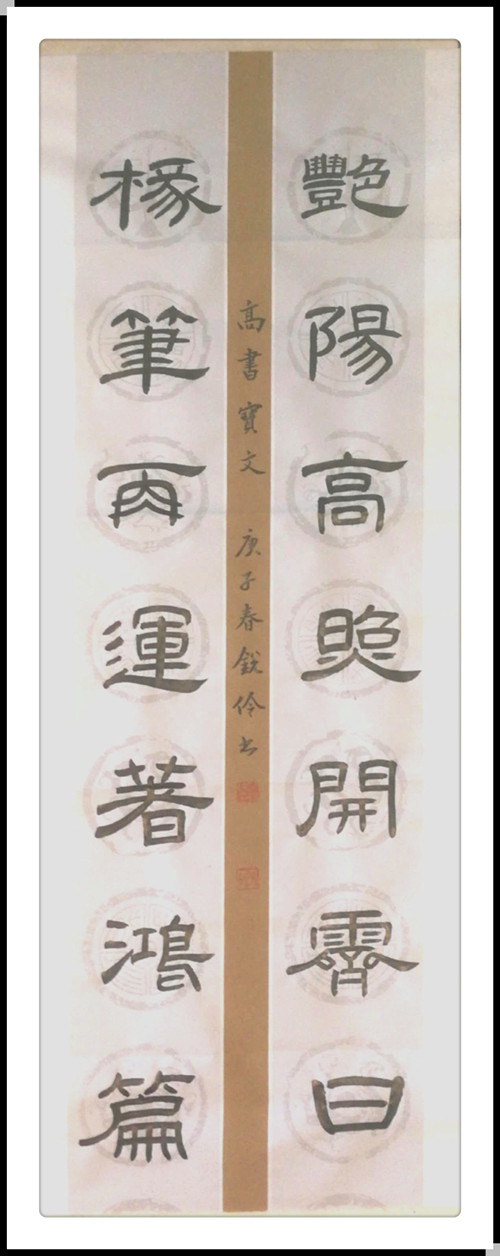 艷陽高照開霽日
椽筆再運著鴻篇
高書寶文 庚子春銳伶书